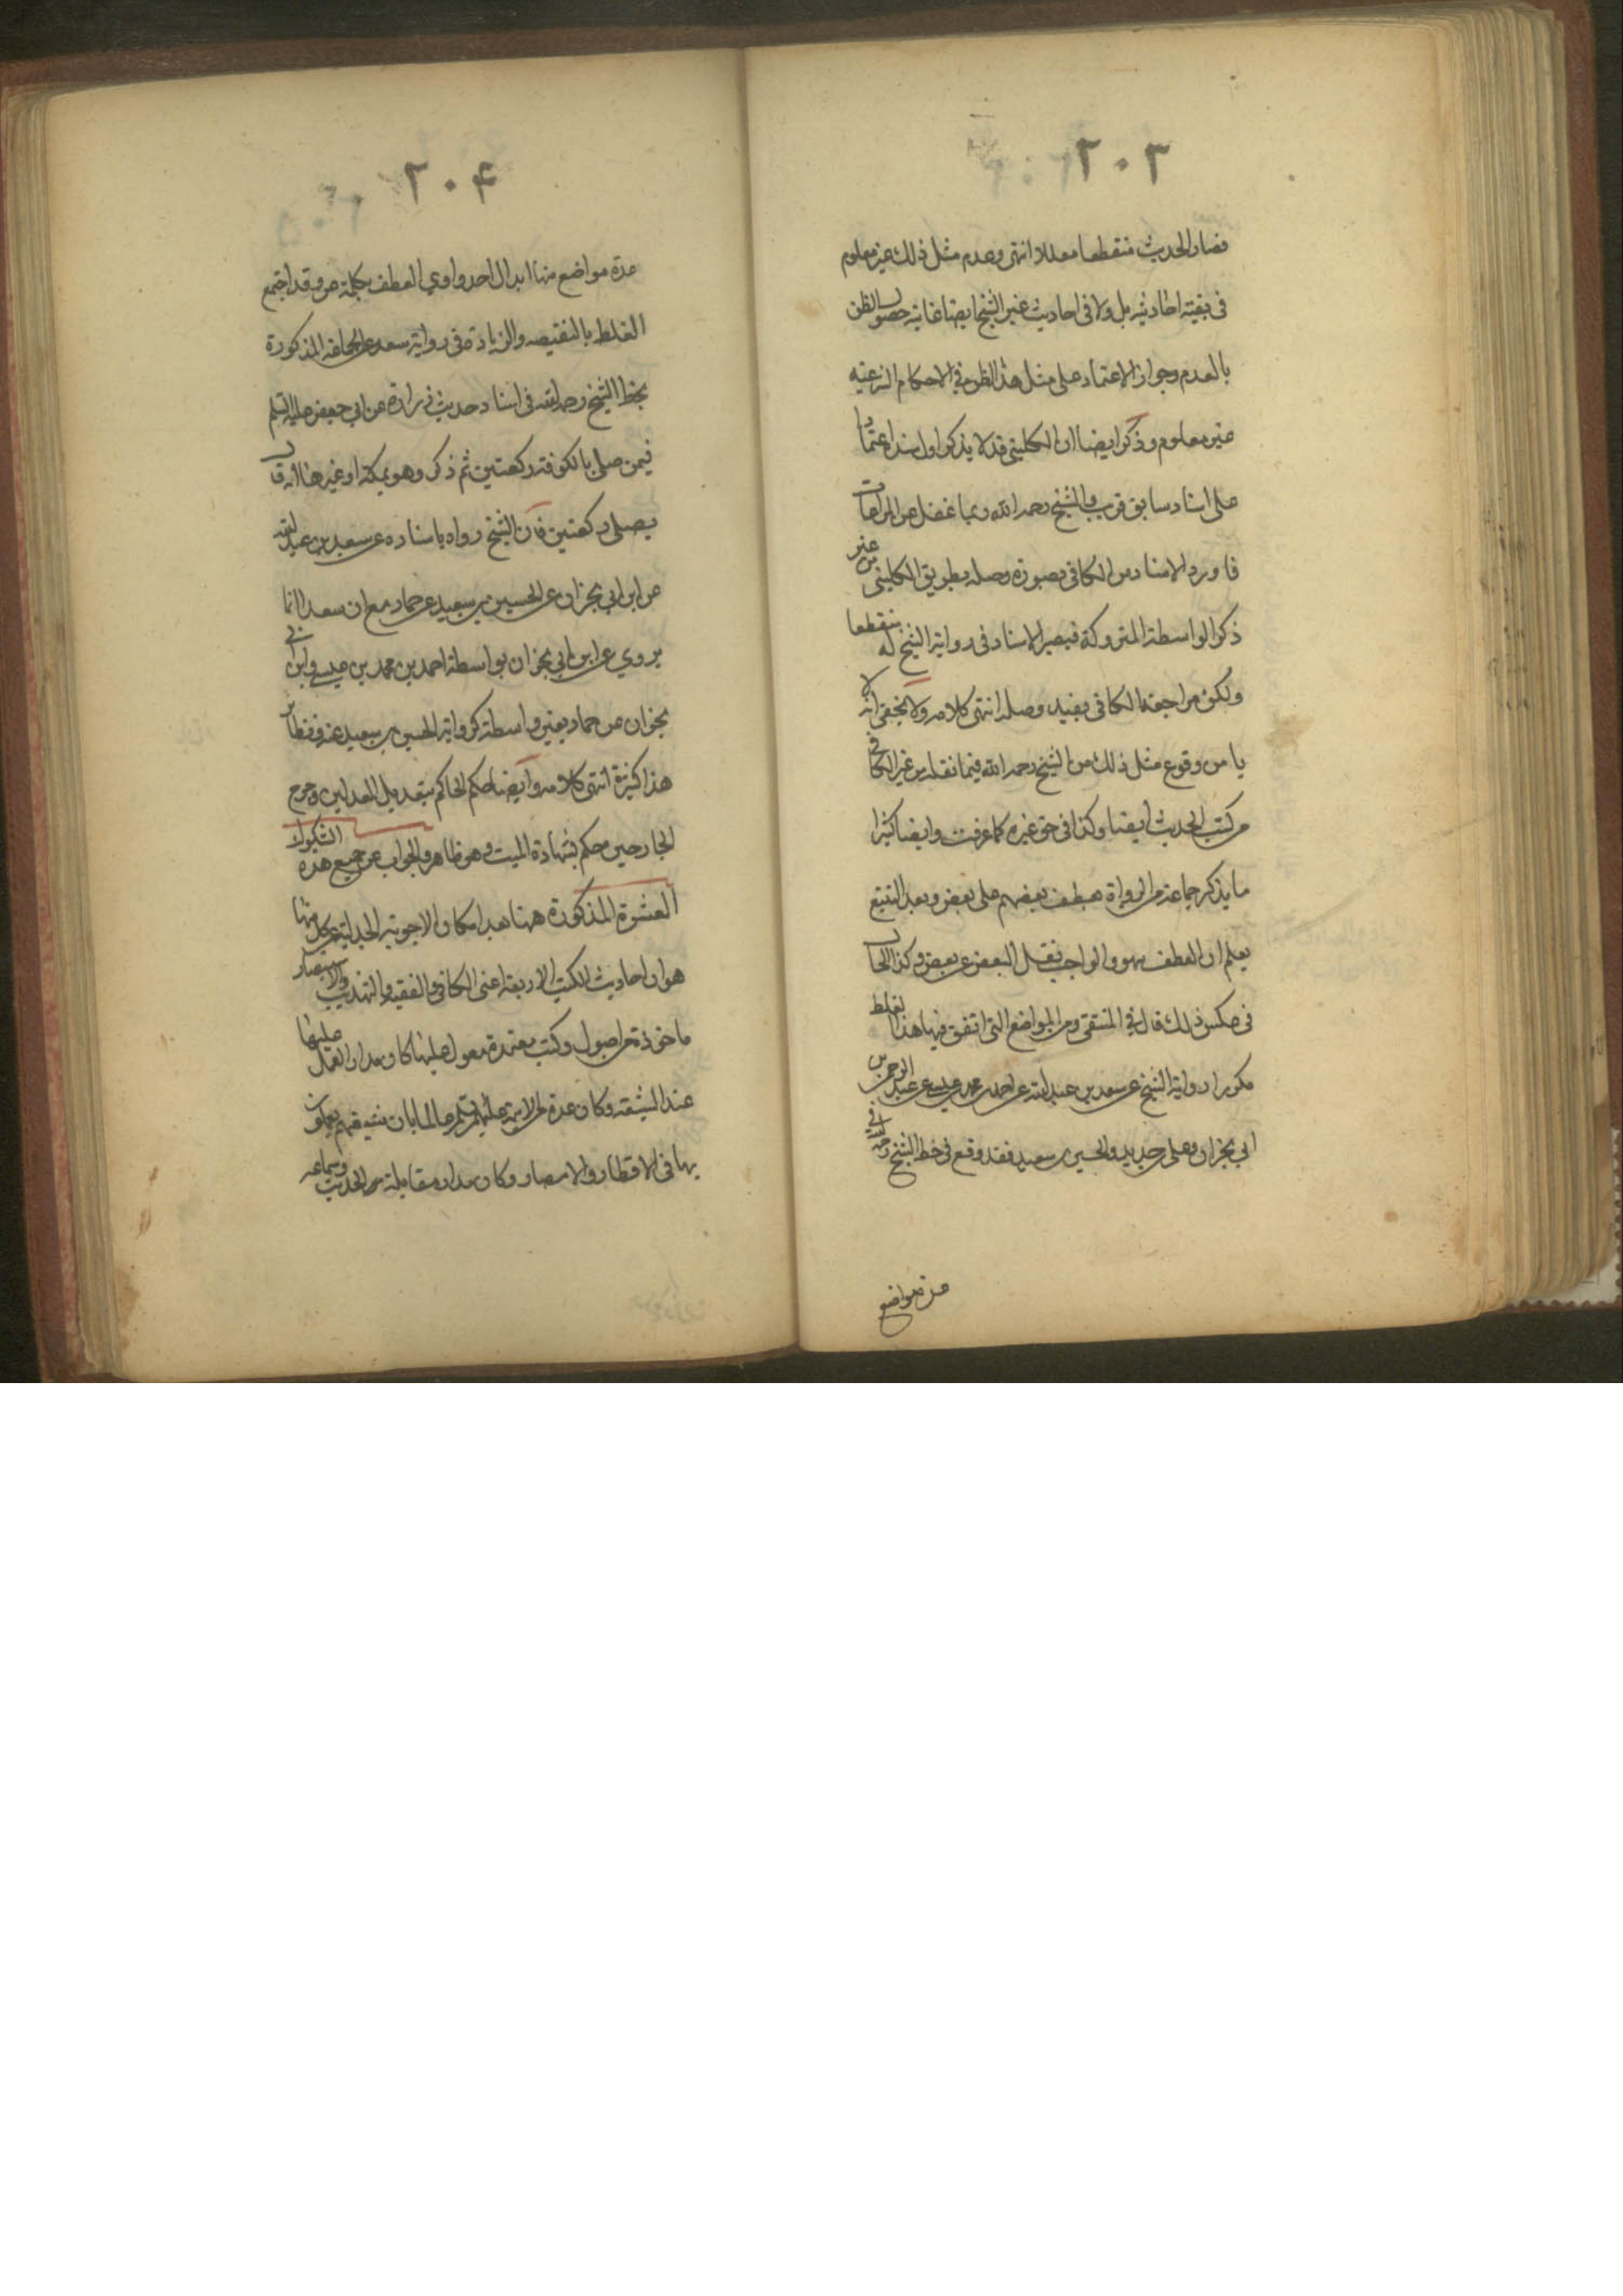 ۲۰۳
فصار الحديث منقطعا معللا انتهى وعدم مثل ذلك غير معلوم
في بقية احاديثه بل ولا في احاديث غير الشيخ ايضا غايته حصول الظن
بالعدم وجواز الاعتماد على مثل هذا الظن في الاحكام الشرعية
غير معلوم وذكر ايضا ان الكليني قد لا يذكر اول سند اعتمادا
على اسناد سابق قريب والشيخ رحمه الله ربما غفل عن المراعات
فاورد الاسناد من الكافي بصورة وصله بطريق الكليني من غير
ذكر الواسطة المتروكة فيصير الاسناد في رواية الشيخ له منقطعا
ولكن مراجعة الكافي يفيد وصله انتهى كلامه ولا يخفى انه لا
يامن وقوع مثل ذلك من الشيخ رحمه الله فيما نقله من غير الكافي
من كتب الحديث ايضا وكذا في حق غيره كما عرفت وايضا كثيرا
ما يذكر جماعة من الرواة بعطف بعضهم على بعض وبعد التتبع
يعلم ان العطف سهو والواجب نقل البعض عن بعض وكذا الحال
في عكس ذلك قال في المنتقى ومن المواضع التي اتفق فيها هذا الغلط
مكررا رواية الشيخ عن سعد بن عبد الله عن احمد بن محمد بن عيسى عن عبد الرحمن بن
ابي نجران وعلي بن حديد والحسين بن سعيد فقد وقع في خط الشيخ رحمه الله في
عدة مواضع
۲۰۴
عدة مواضع منها ابدال احد واوي العطف بكلمة عن وقد اجتمع
الغلط بالنقيصه والزيادة في رواية سعد عن الجماعة المذكورة
بخط الشيخ رحمه الله في اسناد حديث زرارة عن ابي جعفر عليه السلم
فيمن صلى بالكوفة ركعتين ثم ذكر وهو بمكة او غيرها انه قال
يصلي ركعتين فان الشيخ رواه باسناده عن سعد بن عبد الله
عن ابن ابي نجران عن الحسين بن سعيد عن حماد مع ان سعدا انما
يروي عن ابن ابي نجران بواسطة احمد بن محمد بن عيسى وابن ابي
نجران عن حماد بغير واسطة كرواية الحسين بن سعيد عنه ونظائر
هذا كثيرة انتهى كلامه وايضا حكم الحاكم بتعديل المعدلين وجرح
الجارحين حكم بشهادة الميت وهو ظاهر والجواب عن جميع هذه الشكوك
العشرة المذكورة ههنا بعد امكان الاجوبة الجدلية عن كل منها
هو ان احاديث الكتب الاربعة اعني الكافي والفقيه والتهذيب والاستبصار
ماخوذة من اصول وكتب معتمدة معول عليها كان مدار العمل عليها
عند الشيعة وكان عدة من الائمة عليهم السلم عالما بان شيعتهم يعملون
بها في الاقطار والامصار وكان مدار مقابلة الحديث وسماعه